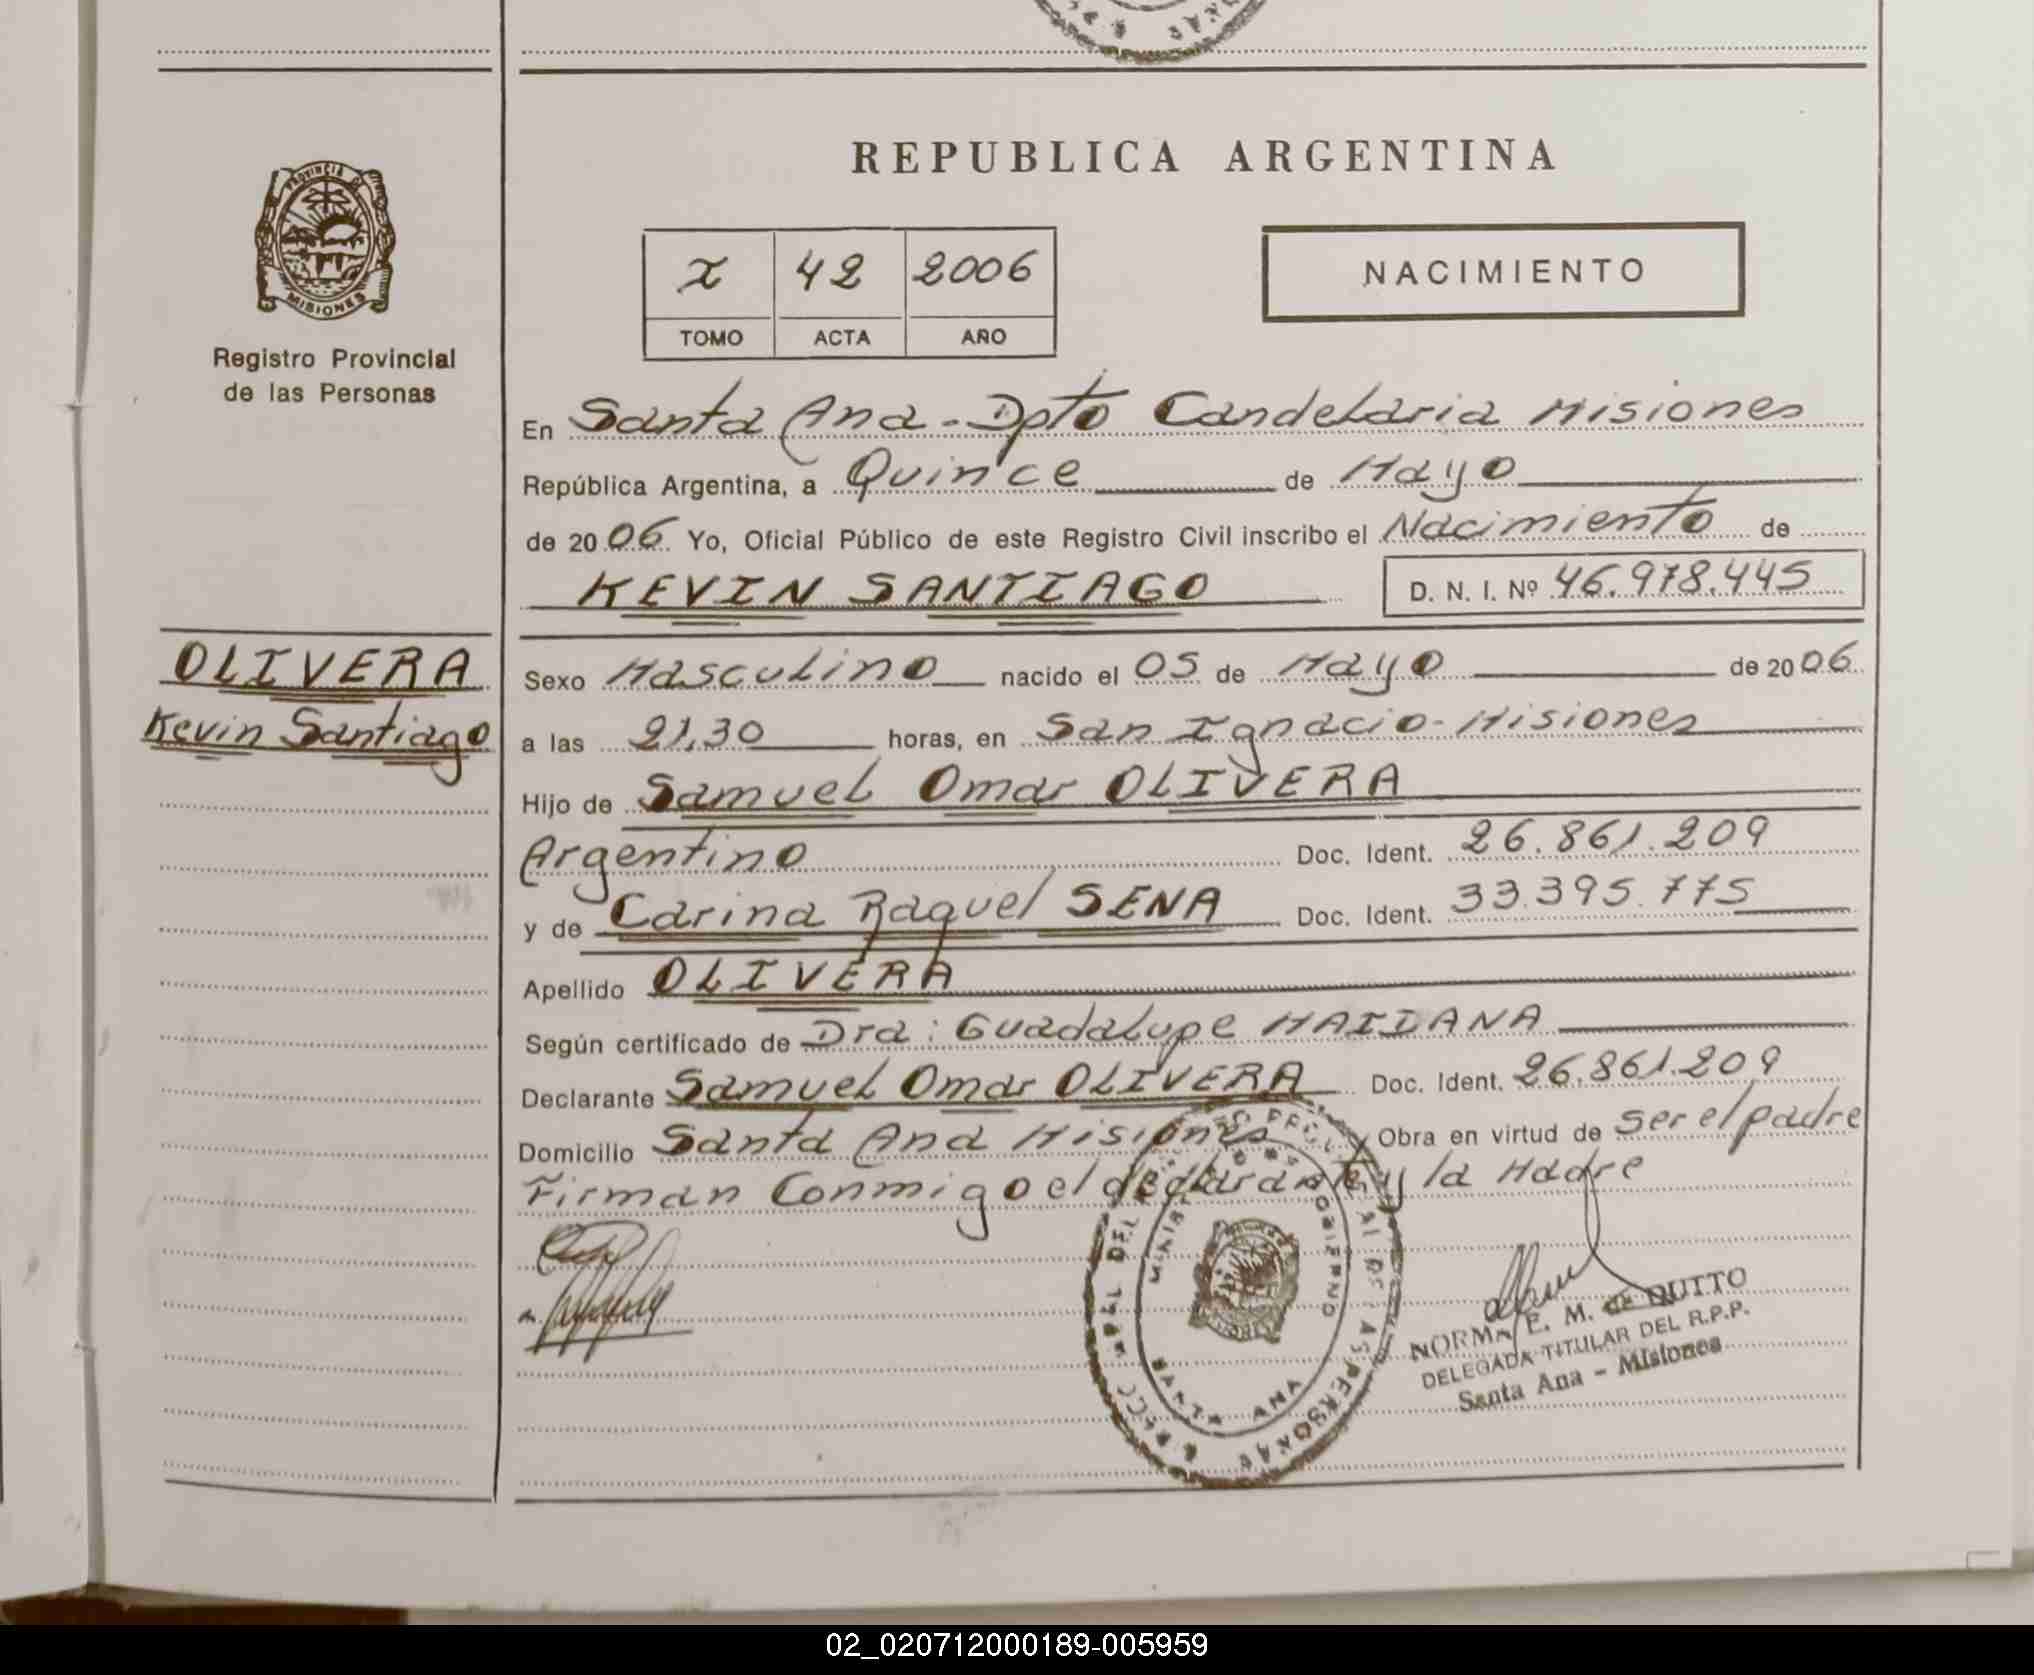 REPUBLICA ARGENTINA
PROVINCIA DE
MISIONES
Registro Provincial
de las Personas
I 42 2006
TOMO ACTA AÑO
NACIMIENTO
En Santa Ana - Dpto Candelaria Misiones
República Argentina, a Quince de Mayo
de 2006 Yo, Oficial Público de este Registro Civil inscribo el Nacimiento de
KEVIN SANTIAGO D. N. I. Nº 46.978.445
OLIVERA
Kevin Santiago
Sexo Masculino nacido el 05 de Mayo de 2006
a las 21,30 horas, en San Ignacio - Misiones
Hijo de Samuel Omar OLIVERA
Argentino Doc. Ident. 26.861.209
y de Carina Raquel SENA Doc. Ident. 33.395.775
Apellido OLIVERA
Según certificado de Dra: Guadalupe MAIDANA
Declarante Samuel Omar OLIVERA Doc. Ident. 26.861.209
Domicilio Santa Ana Misiones Obra en virtud de ser el padre
Firman Conmigo el declarante y la Madre
SANTA ANA
NORMA E. M. de QUITTO
DELEGADA TITULAR DEL R.P.P.
Santa Ana - Misiones
02_020712000189-005959